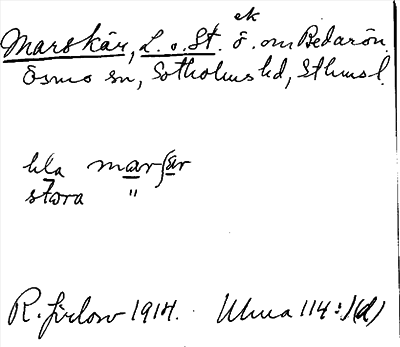 ek
Marskär, L. o. St. ö. om Bedarön
Ösmo sn, Sotholms hd, Sthms l.
lıla marʃär
stora "
R. Jirlow 1914. Ulma 114:1(d)